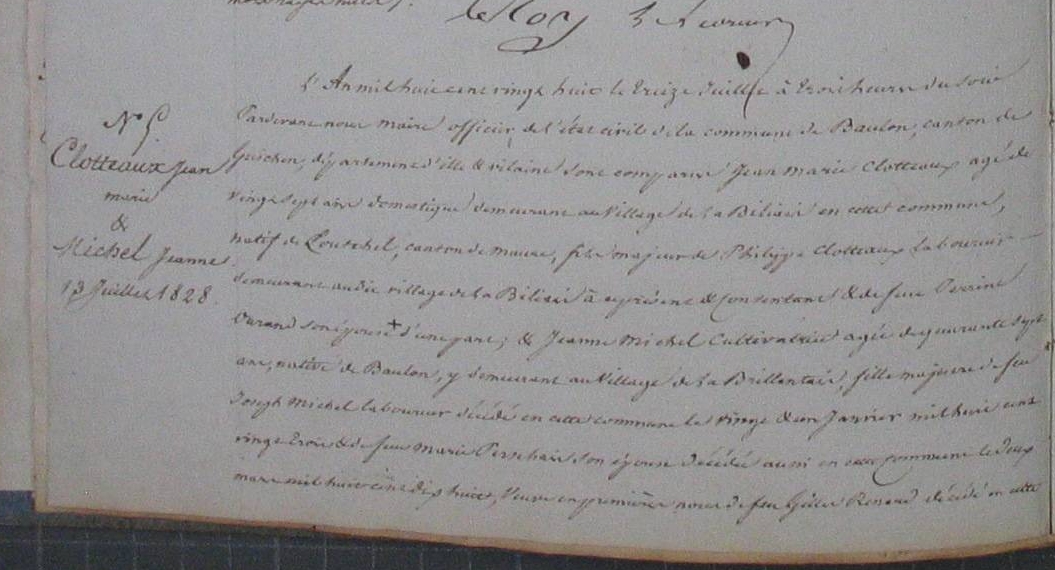 Le Roy
N° 5.
Clotteaux Jean
marie
&
Michel Jeanne
13 Juillet 1828.
L'An mil huit cent vingt huit le treize Juillet à trois heures du soir
Pardevant nous maire officier de l'état civil de la commune de Baulon, canton de
Guichen, département d'ille & vilaine sont comparus Jean marie Clotteaux agé de
vingt sept ans domestique demeurant au village de la Béliais en cette commune,
natif de Loutehel, canton de maure, fils majeur de Philippe Clotteaux laboureur
demeurant audit village de la Béliais à ce présent & consentant & de feue Perrine
Durand son épouse + d'une part; & Jeanne Michel Cultivatrice agée de quarante sept
ans, native de Baulon, y demeurant au village de la Brillantais, fille majeure de feu
Joseph Michel laboureur décédé en cette commune le vingt & un Janvier mil huit cent
vingt trois & de feue Marie son épouse décédée aussi en cette commune le deux
mars mil huit cent dix huit, Veuve en premières noces de feu Gilles Renaud décédé en cette